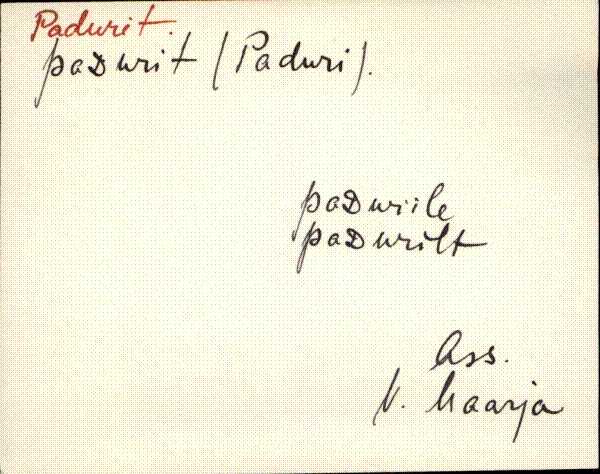 Padurit.
paᴅurit (Paduri).
paᴅuriile
paᴅurilt
Ass.
V. Maarja